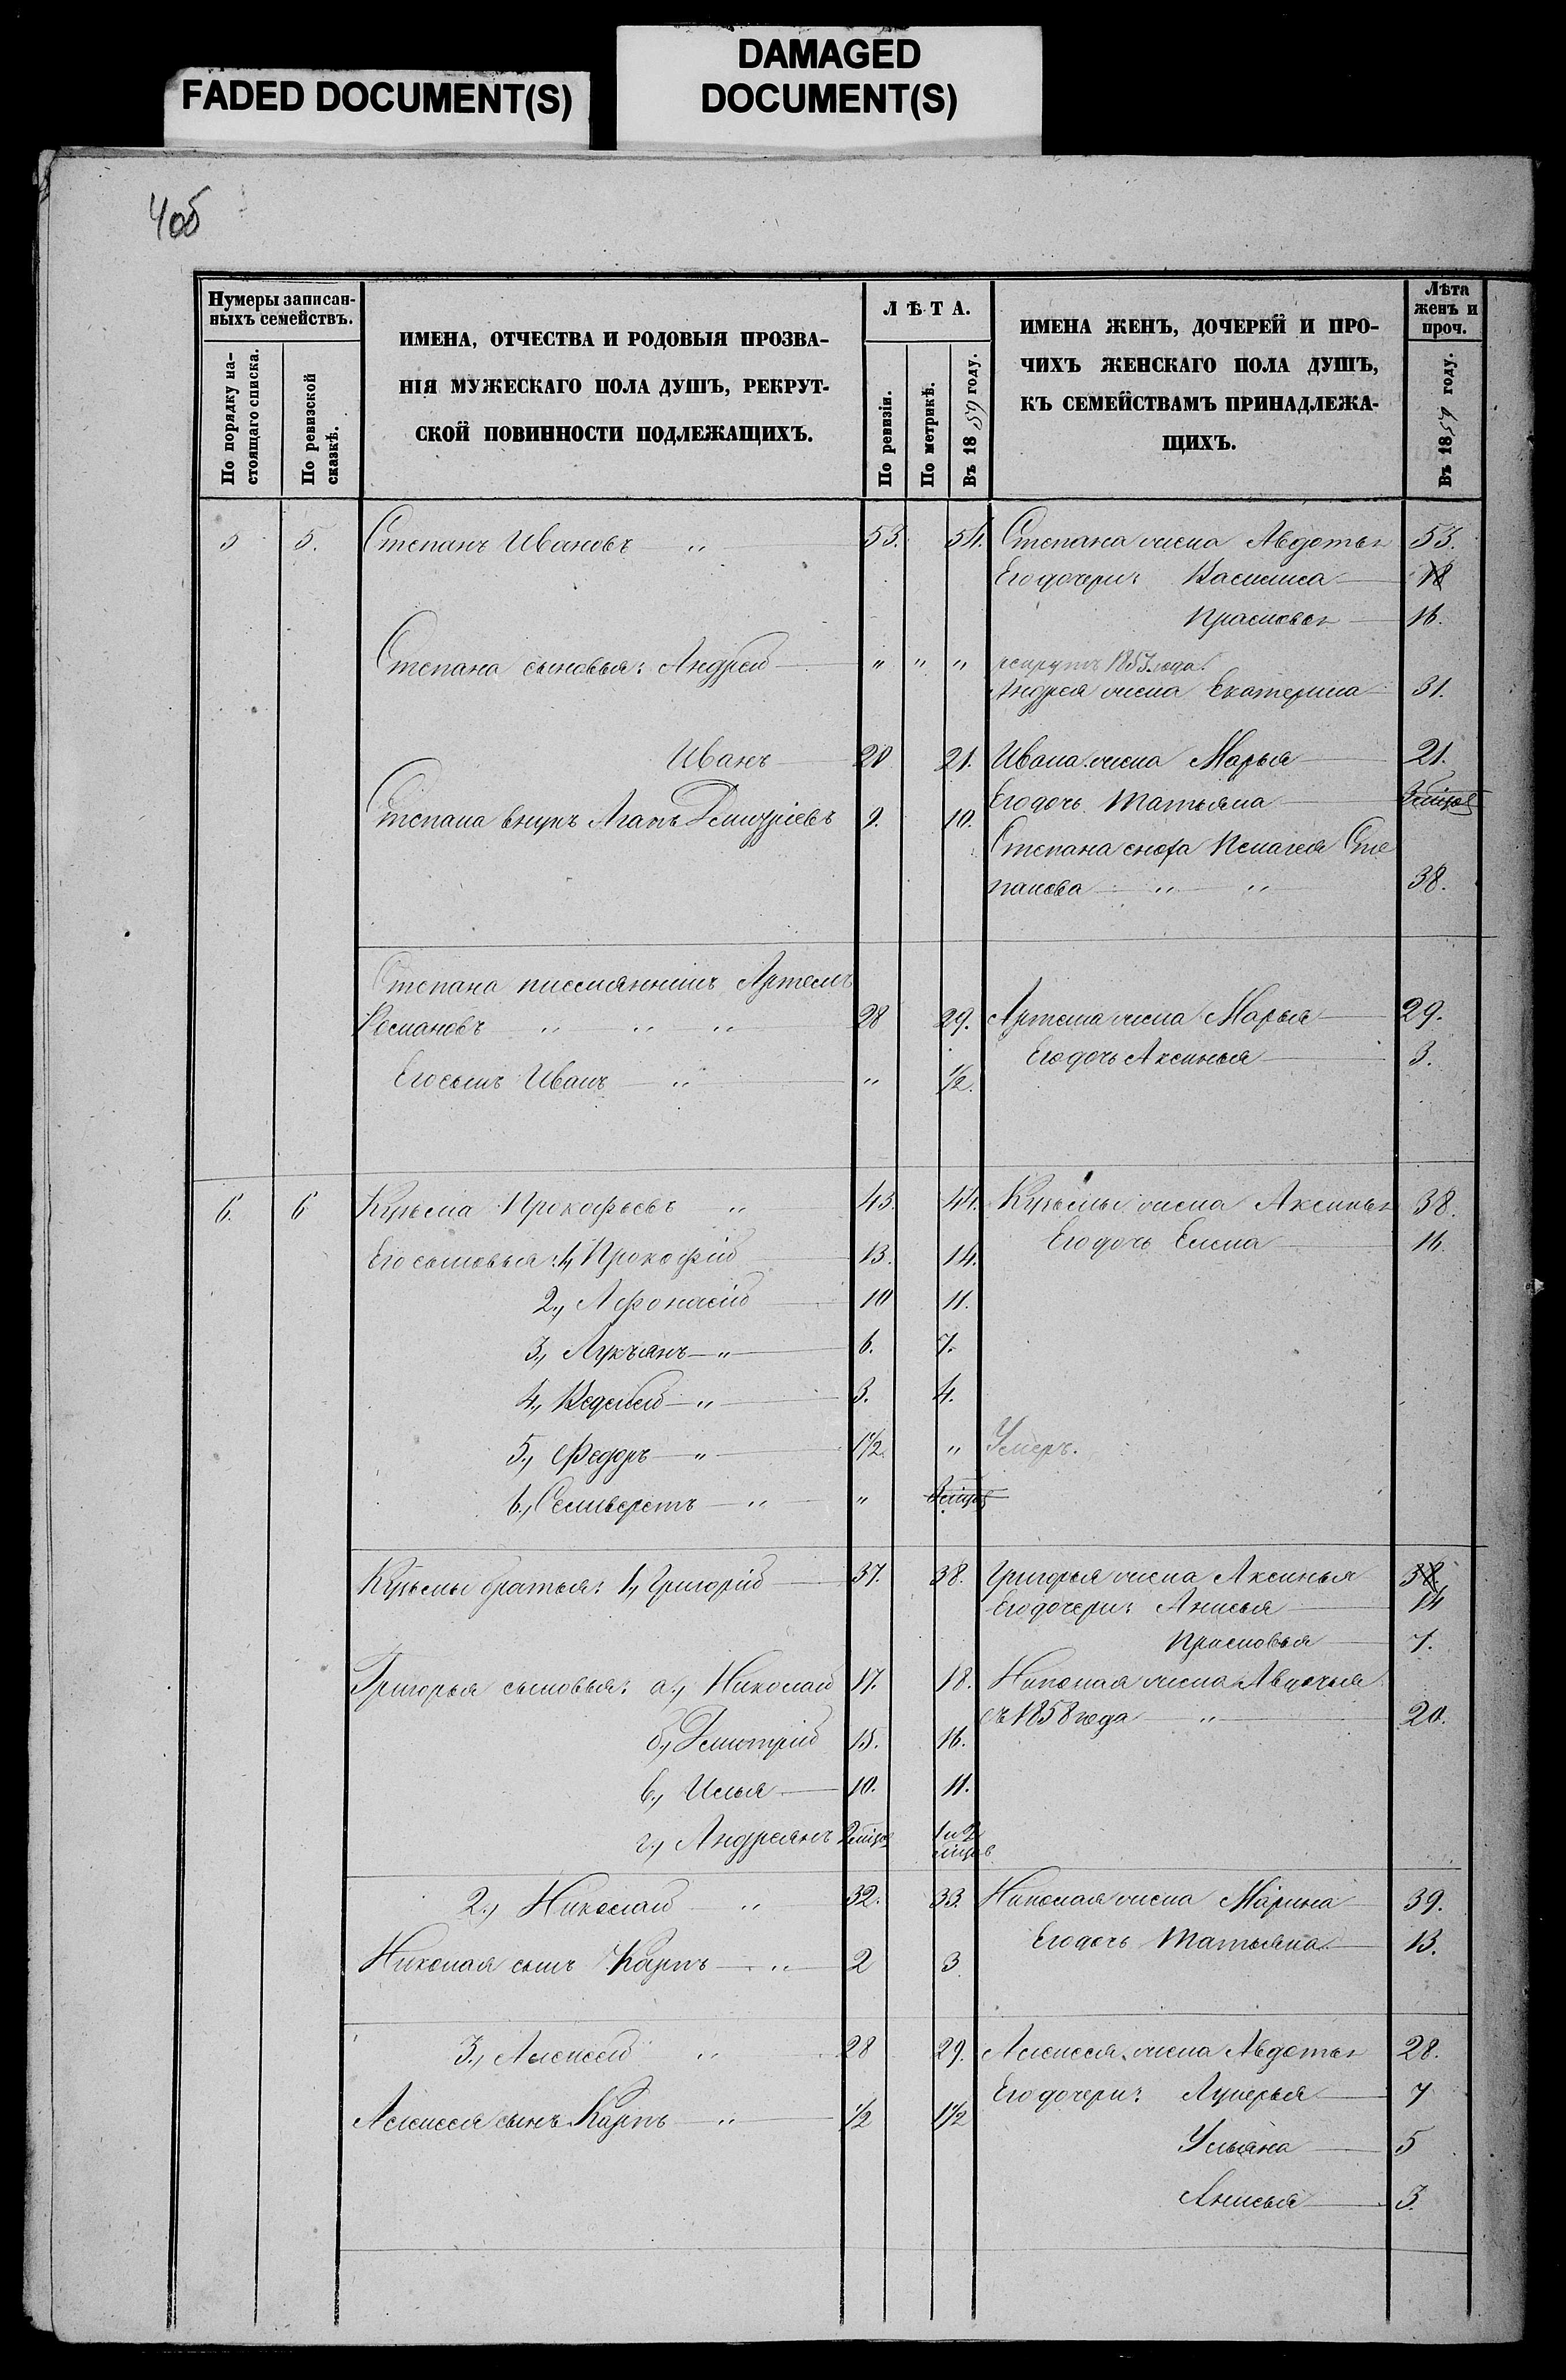 FADED DOCUMENT(S)
DAMAGED
DOCUMENT(S)
Нумеры записан-
ныхъ семействъ.
По порядку на-
стоящаго списка.
По ревизской
сказкѣ.
ИМЕНА, ОТЧЕСТВА И РОДОВЫЯ ПРОЗВА-
НІЯ МУЖЕСКАГО ПОЛА ДУШЪ, РЕКРУТ-
СКОЙ ПОВИННОСТИ ПОДЛЕЖАЩИХЪ.
ЛѢТА.
По ревизіи.
По метрикѣ.
Въ 1859 году.
ИМЕНА ЖЕНЪ, ДОЧЕРЕЙ И ПРО-
ЧИХЪ ЖЕНСКАГО ПОЛА ДУШЪ,
КЪ СЕМЕЙСТВАМЪ ПРИНАДЛЕЖА-
ЩИХЪ.
Лѣта
женъ и
проч.
Въ 1859 году.
5 5. Степанъ Ивановъ „ 53. 54. Степана жена Авдотья 53.
Его дочери: Василиса 18
Прасковья 16.
Степана сыновья: Андрей „ „ „ рекрутъ 1853 года.
Андрея жена Екатерина 31.
Иванъ 20 21. Ивана жена Марья 21.
Его дочь Татьяна
Степана внукъ Агапъ Дмитріевъ 9. 10.
Степана сноха Пелагея Сте
панова „ „ 38.
Степана племянникъ Артемъ
Романовъ „ „ „ 28 29. Артема жена Марья 29.
Его дочь Аксинья 3.
Его сынъ Иванъ „ „ 1/2.
6. 6 Кузьма Прокофьевъ „ 43. 44. Кузьмы жена Аксинья 38.
Его сыновья: 1, Прокофій 13. 14. Его дочь Елена 16.
2., Афонасій 10 11.
3., Лукъянъ „ 6. 7.
4., Веденей „ 3. 4.
5., Федоръ „ 1 1/2. „ Умеръ.
6., Селиверстъ „ „
Кузьмы братья: 1, Григорій 37. 38. Григорья жена Аксинья 38
Его дочери: Анисья 14
Прасковья 7.
Григорья сыновья: а., Николай 17. 18. Николая жена Авдотья
съ 1858 года „ 20.
б., Дмитрій 15. 16.
в., Илья 10. 11.
г., Андреянъ
2., Николай „ 32. 33. Николая жена Марина 39.
Его дочь Татьяна 13.
Николая сынъ Карпъ „ 2 3
3., Алексей „ 28 29. Алексея жена Авдотья 28.
Его дочери: Лукерья 7
Алексея сынъ Карпъ „ 1/2 1 1/2
Ульяна 5
Анисья 3.